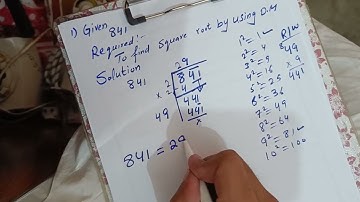 1) Given 841
Required:-
To find square root by using D.M
Solution
841
29
2 | 841
× 2 | 4
441
49 | 441
×
841 = 29
1² = 1
2² = 4
3² = 9
4² = 16
5² = 25
6² = 36
7² = 49
8² = 64
9² = 81
10² = 100
R/W
49
× 9
441